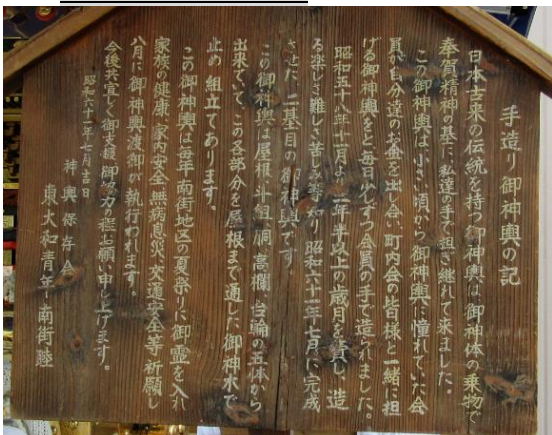 手造り御神輿の記
日本古来の伝統を持つ御神輿は、御神体の乗物で
奉賀精神の基に、私達の手で担ぎ継れて来ました。
この御神輿は、小さい頃から御神輿に憧れていた会
員が自分達のお金を出し合い、町内会の皆様と一緒に担
げる御神輿をと毎日少しずつ会員の手で造られました。
昭和五十八年十一月より二年半以上の歳月を費し、造
る楽しさ難しさ苦しみ等知り、昭和六十一年七月に完成
させた、二基目の御神輿です。
この御神輿は屋根、斗組、胴、高欄、台輪の五体から
出来ていて、この各部分を屋根まで通した御神木で
止め組立てあります。
この御神輿は毎年南街地区の夏祭りに御霊を入れ
家族の健康、家内安全、無病息災、交通安全等祈願し
八月に御神輿渡御が執行われます。
今後共宜しく御支援御協力の程お願い申し上げます。
昭和六十一年七月吉日
神輿保存会
東大和青年南街睦